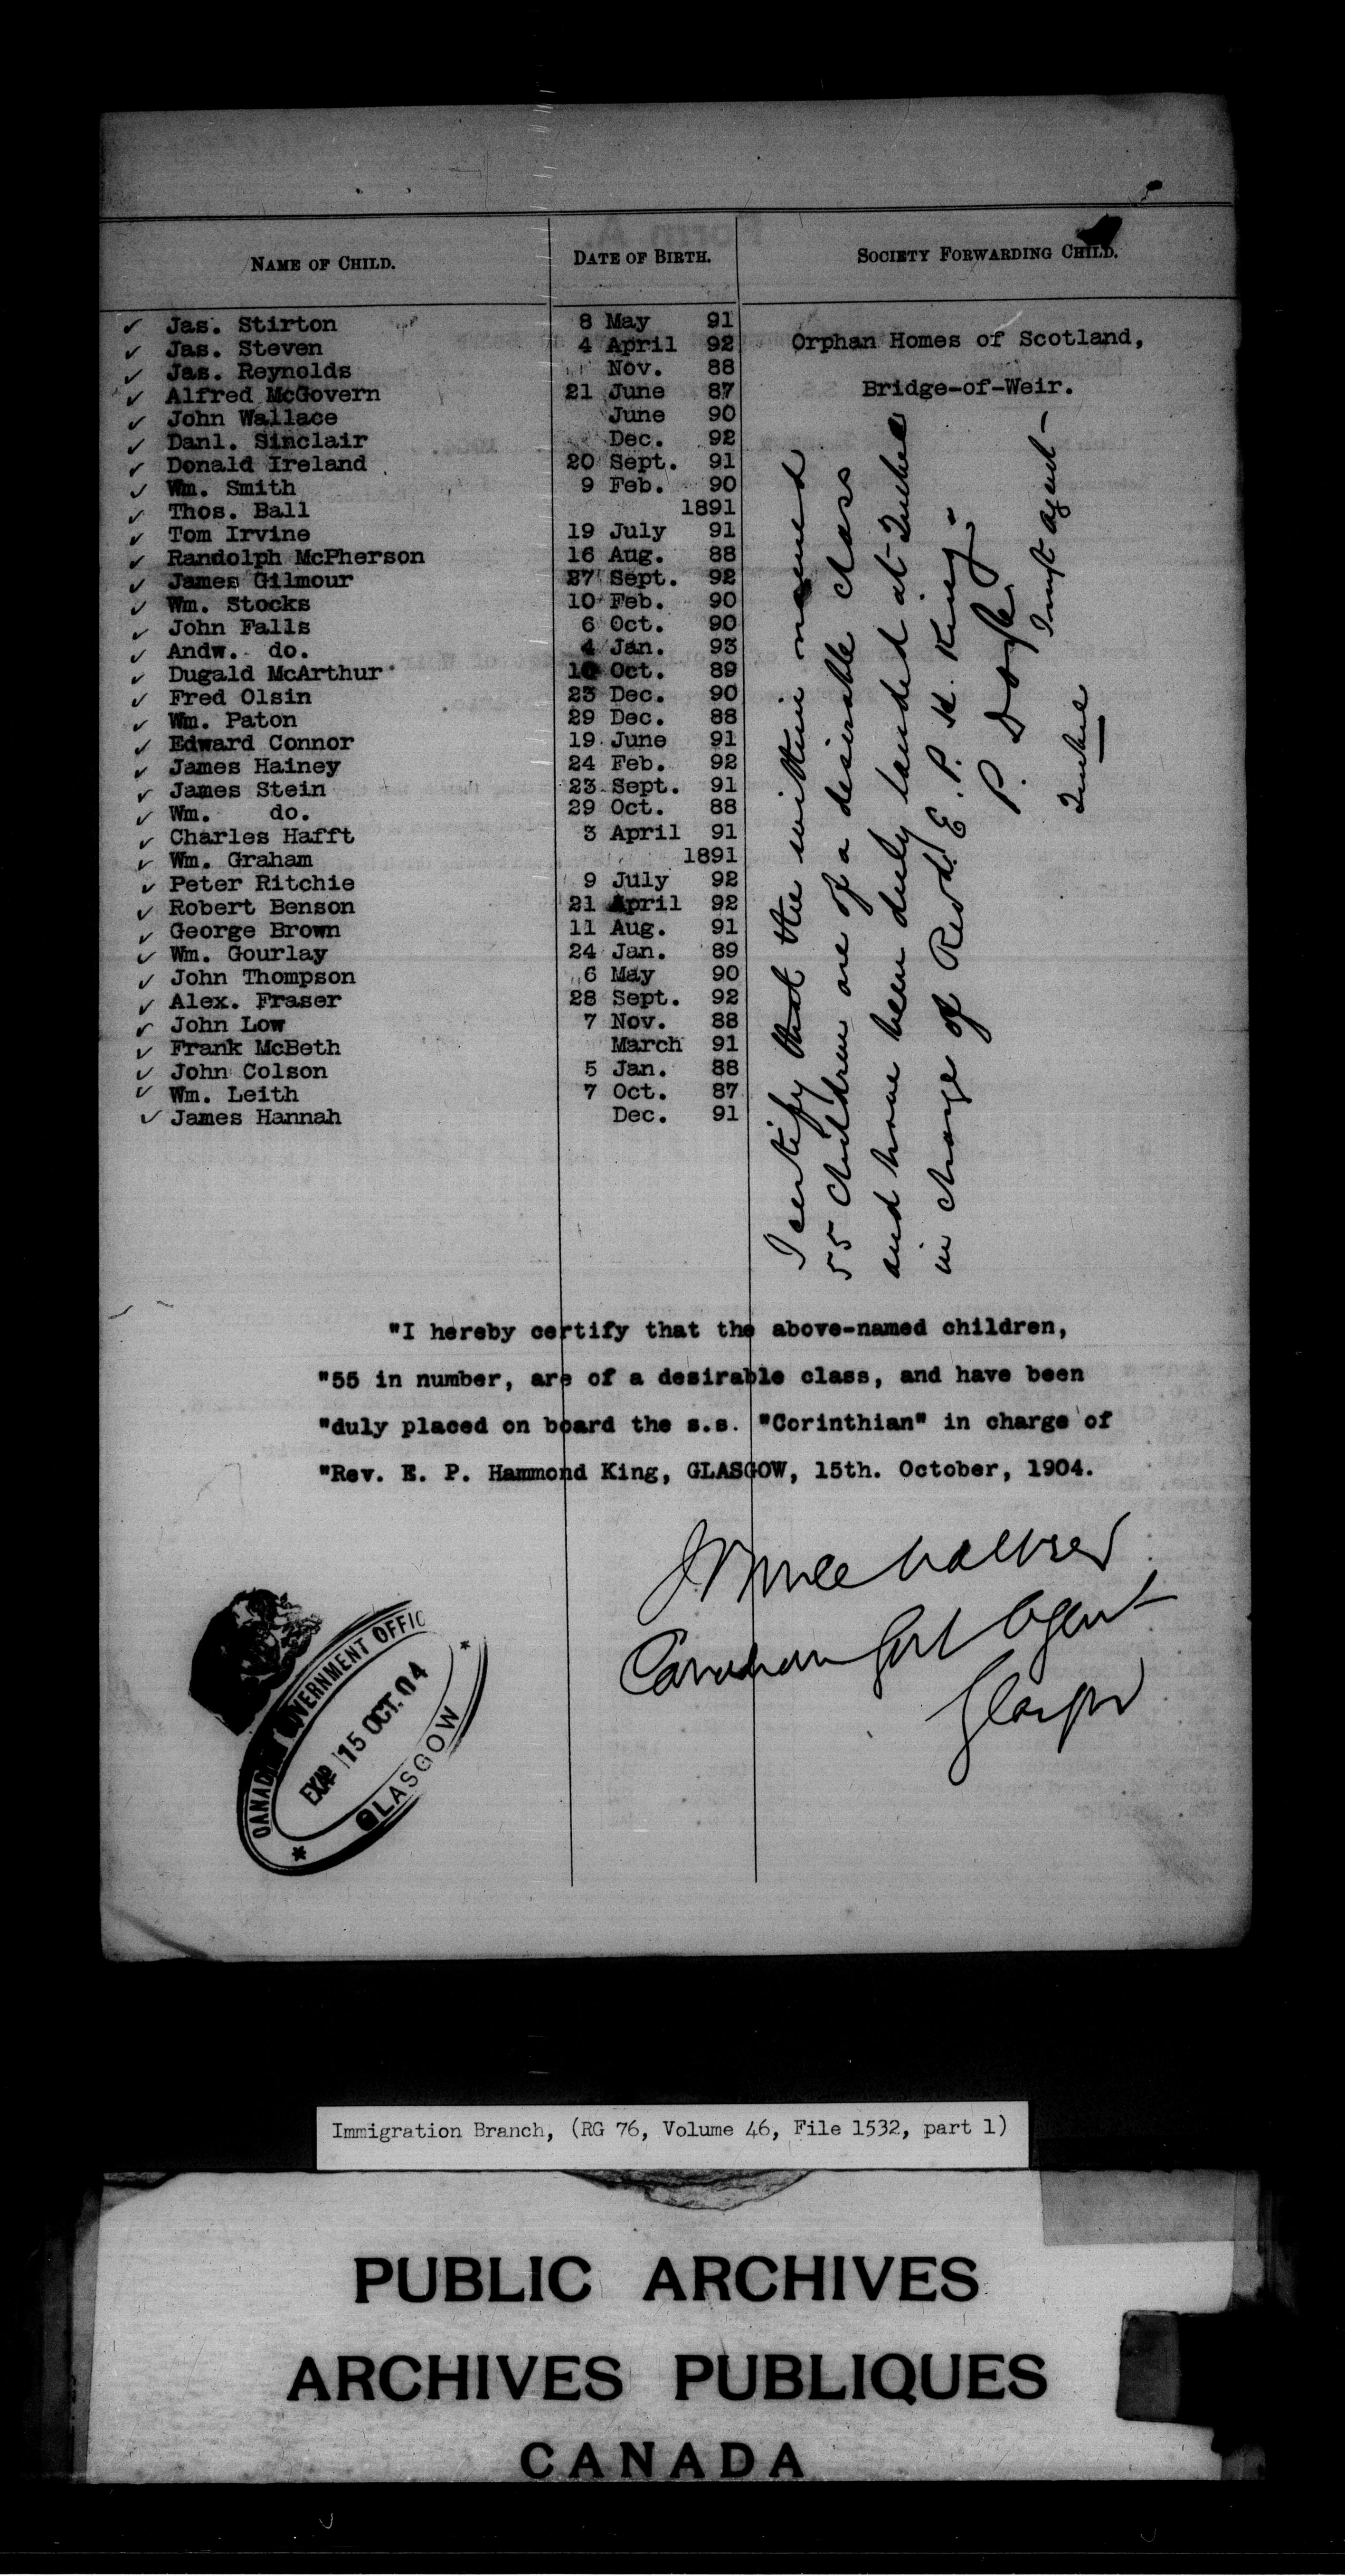 5
NAME OF CHILD. DATE OF BIRTH. SOCIETY FORWARDING CHILD.
✓ Jas. Stirton 8 May 91
✓ Jas. Steven 4 April 92
✓ Jas. Reynolds Nov. 88
✓ Alfred McGovern 21 June 87
✓ John Wallace June 90
✓ Danl. Sinclair Dec. 92
✓ Donald Ireland 20 Sept. 91
✓ Wm. Smith 9 Feb. 90
✓ Thos. Ball 1891
✓ Tom Irvine 19 July 91
✓ Randolph McPherson 16 Aug. 88
✓ James Gilmour 27 Sept. 92
✓ Wm. Stocks 10 Feb. 90
✓ John Falls 6 Oct. 90
✓ Andw. do. 4 Jan. 93
✓ Dugald McArthur Oct. 89
✓ Fred Olsin 23 Dec. 90
✓ Wm. Paton 29 Dec. 88
✓ Edward Connor 19 June 91
✓ James Hainey 24 Feb. 92
✓ James Stein 23 Sept. 91
✓ Wm. do. 29 Oct. 88
✓ Charles Hafft 3 April 91
✓ Wm. Graham 1891
✓ Peter Ritchie 9 July 92
✓ Robert Benson 21 April 92
✓ George Brown 11 Aug. 91
✓ Wm. Gourlay 24 Jan. 89
✓ John Thompson 6 May 90
✓ Alex. Fraser 28 Sept. 92
✓ John Low 7 Nov. 88
✓ Frank McBeth March 91
✓ John Colson 5 Jan. 88
✓ Wm. Leith 7 Oct. 87
✓ James Hannah Dec. 91
Orphan Homes of Scotland,
Bridge-of-Weir.
I certify that the within named
55 children are of a desirable class
and have been duly landed at Quebec
in charge of Revd. E. P. H. King.
P. Doyle
Immgt Agent
Quebec
"I hereby certify that the above-named children,
"55 in number, are of a desirable class, and have been
"duly placed on board the s.s. "Corinthian" in charge of
"Rev. E. P. Hammond King, GLASGOW, 15th. October, 1904.
Canadian Govt Agent
Glasgow
CANADIAN GOVERNMENT OFFIC
15 OCT. 04
GLASGOW
Immigration Branch, (RG 76, Volume 46, File 1532, part 1)
PUBLIC ARCHIVES
ARCHIVES PUBLIQUES
CANADA